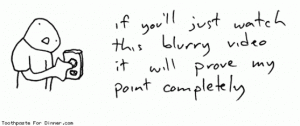 if you'll just watch
this blurry video
it will prove my
point completely
Toothpaste For Dinner.com